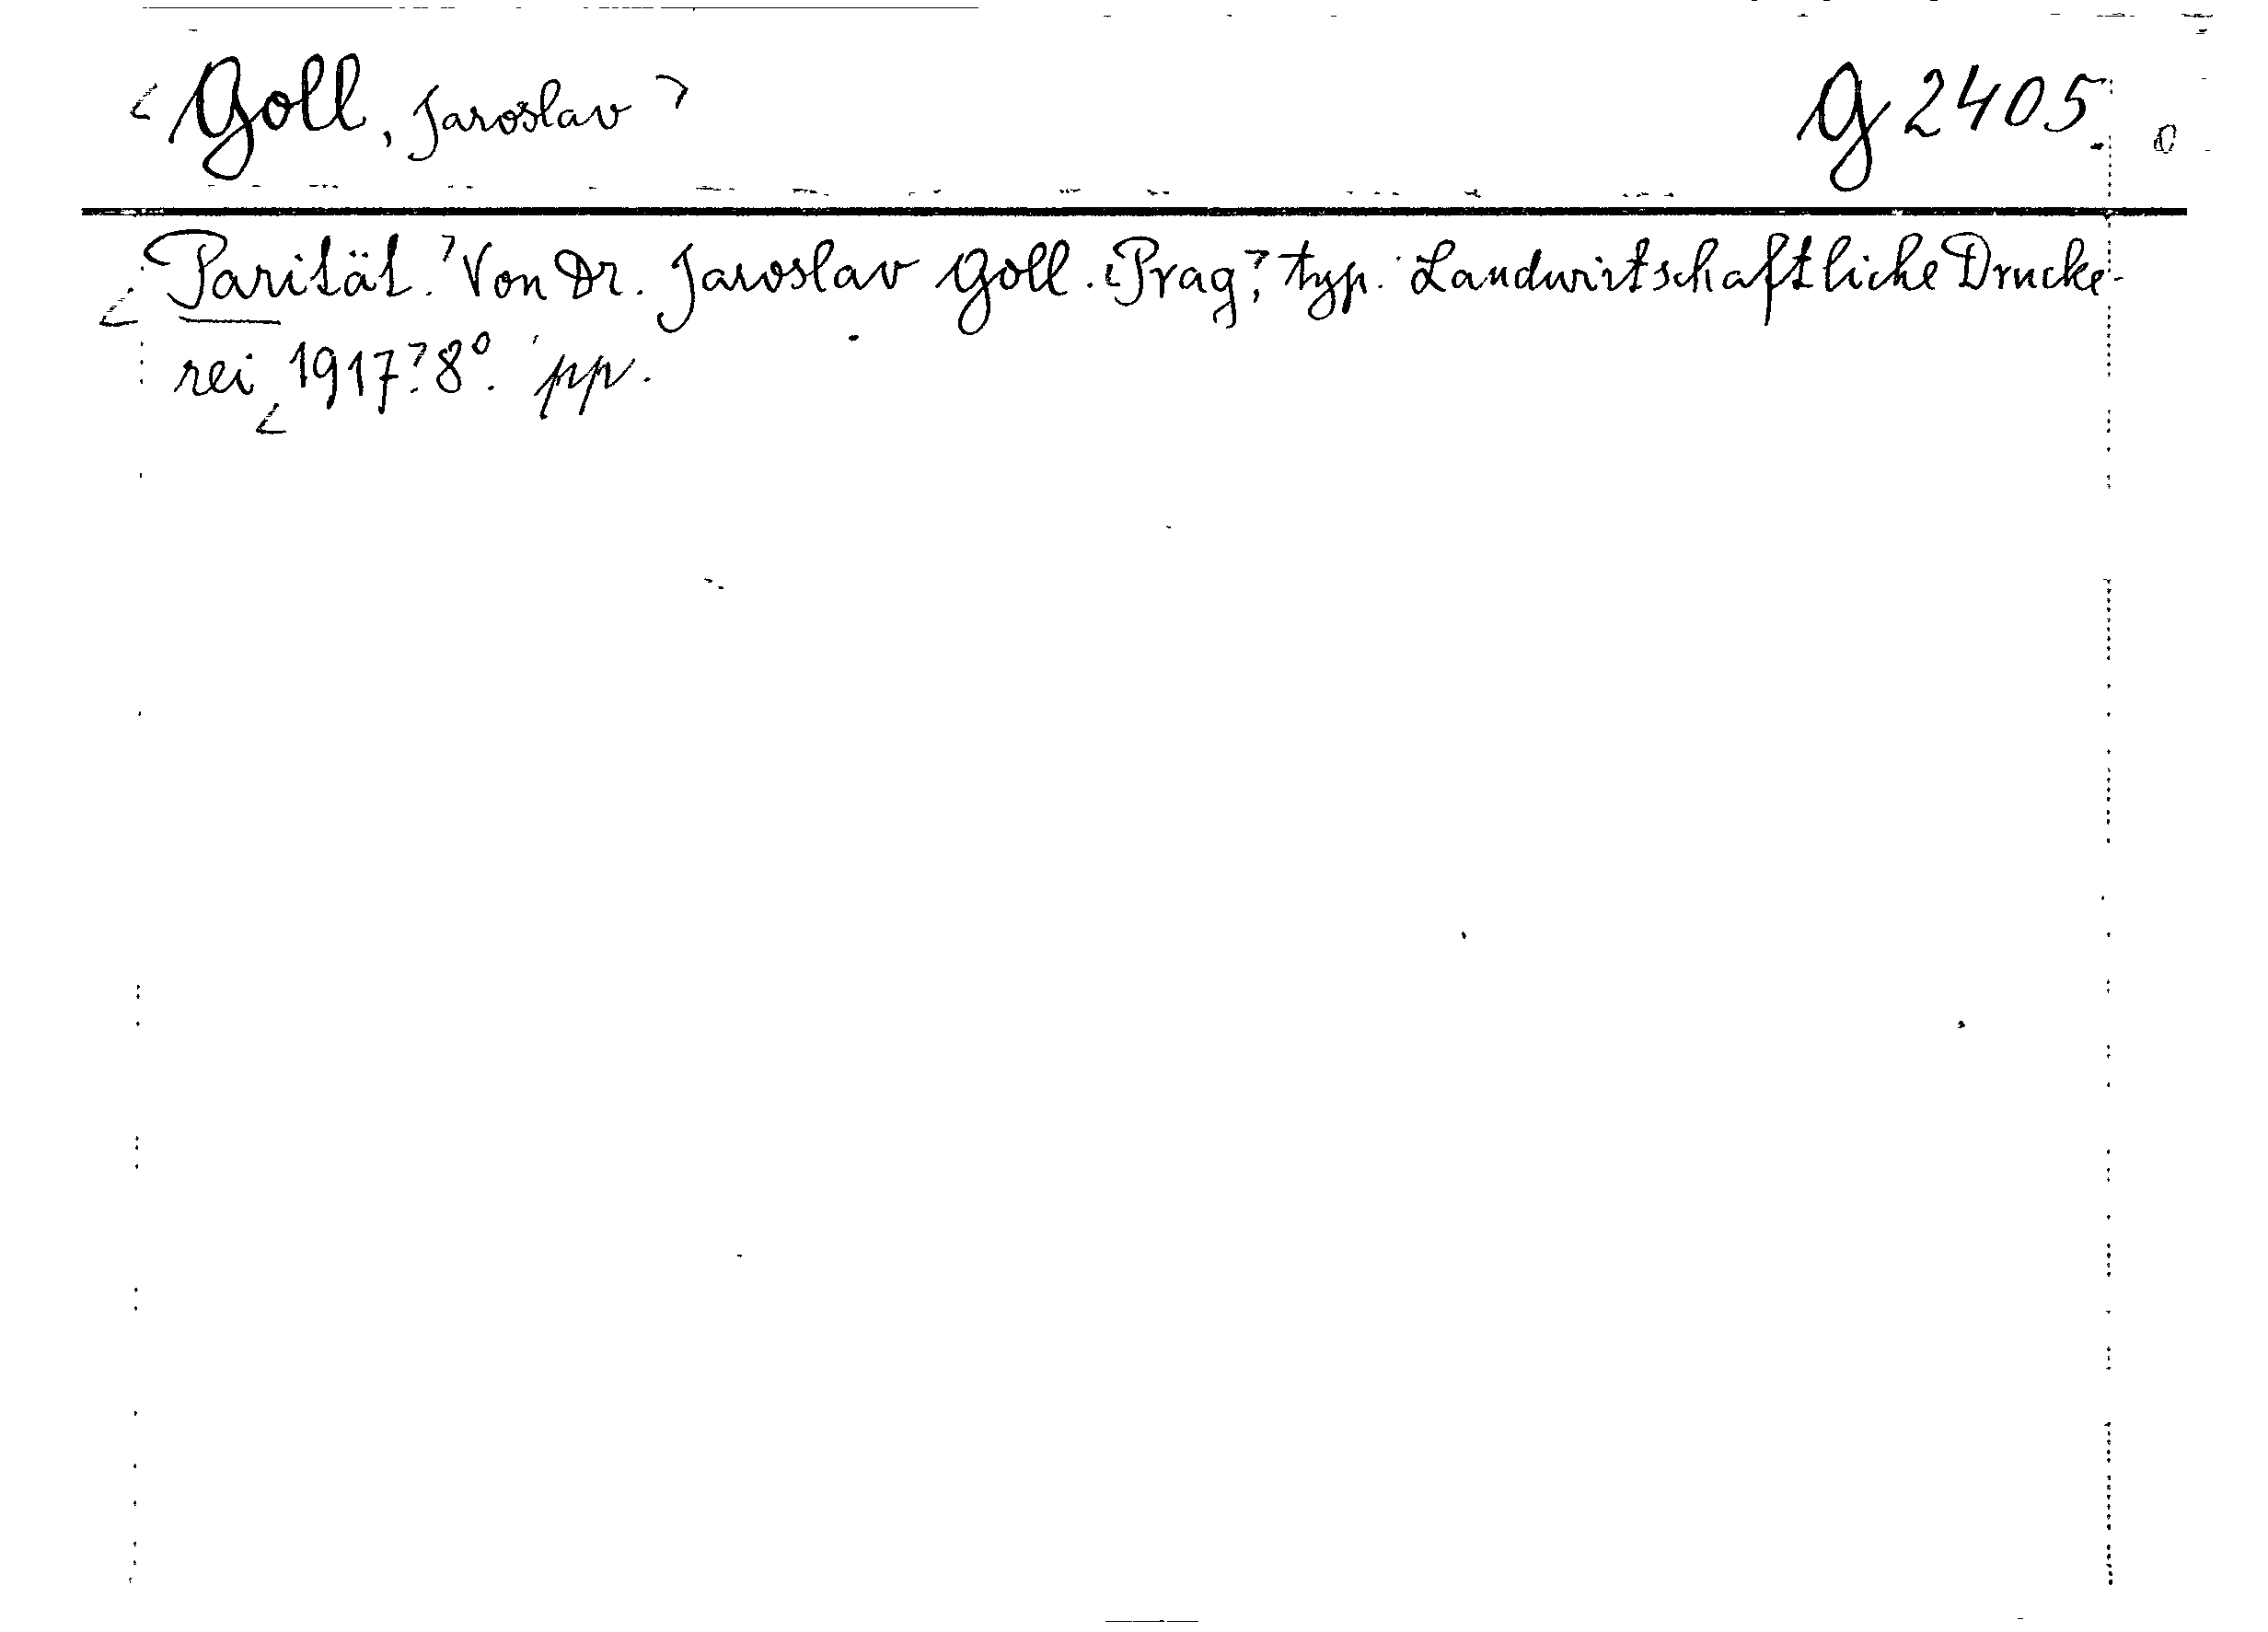 Goll, Jaroslav
G 2405.
Parität. Von Dr. Jaroslav Goll. Prag, typ. Landwirtschaftliche Drucke-
rei 1917. 8°. pp.